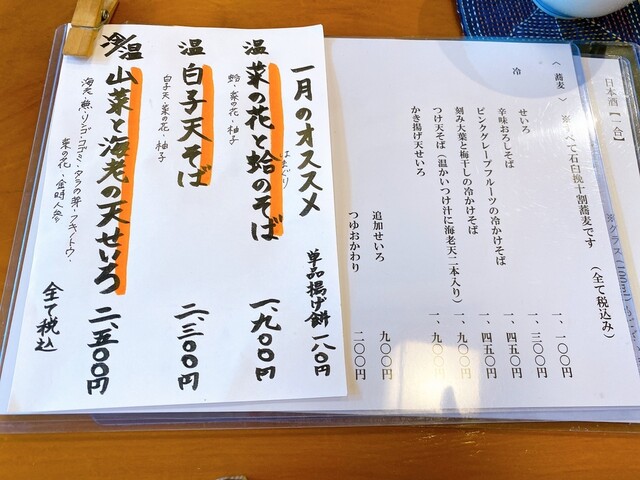 日本酒【一合】
※グラス(100ml)
〈蕎麦〉 ※すべて石臼挽十割蕎麦です (全て税込み)
冷
せいろ 一、一〇〇円
辛味おろしそば 一、三〇〇円
ピンクグレープフルーツの冷かけそば 一、四五〇円
刻み大葉と梅干しの冷かけそば 一、四五〇円
つけ天そば(温かいつけ汁に海老天二本入り) 一、九〇〇円
かき揚げ天せいろ 一、九〇〇円
追加せいろ 九〇〇円
つゆおかわり 二〇〇円
一月のオススメ
単品揚げ餅 一八〇円
はまぐり
温 菜の花と蛤のそば 一、九〇〇円
蛤・菜の花・柚子
温 白子天そば 二、三〇〇円
白子天・菜の花・柚子
冷/温 山菜と海老の天せいろ 二、五〇〇円
コゴミ・タラの芽・フキノトウ・
菜の花・金時人参
全て税込